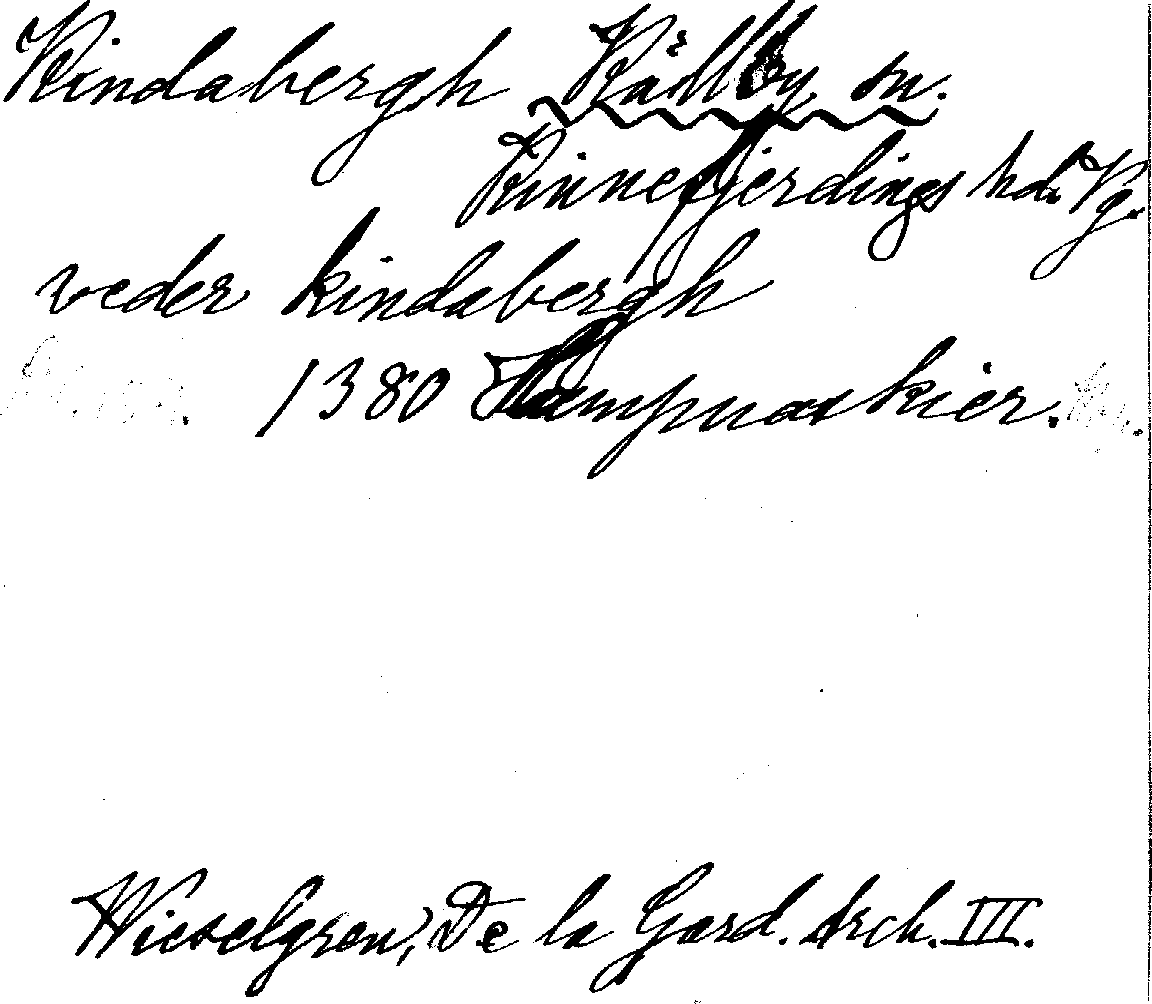 Kindabergh Källby sn.
Kinnefjerdings hd. Vg.
veder kindabergh
1380
Wieselgren, De la Gard. Arch. III.